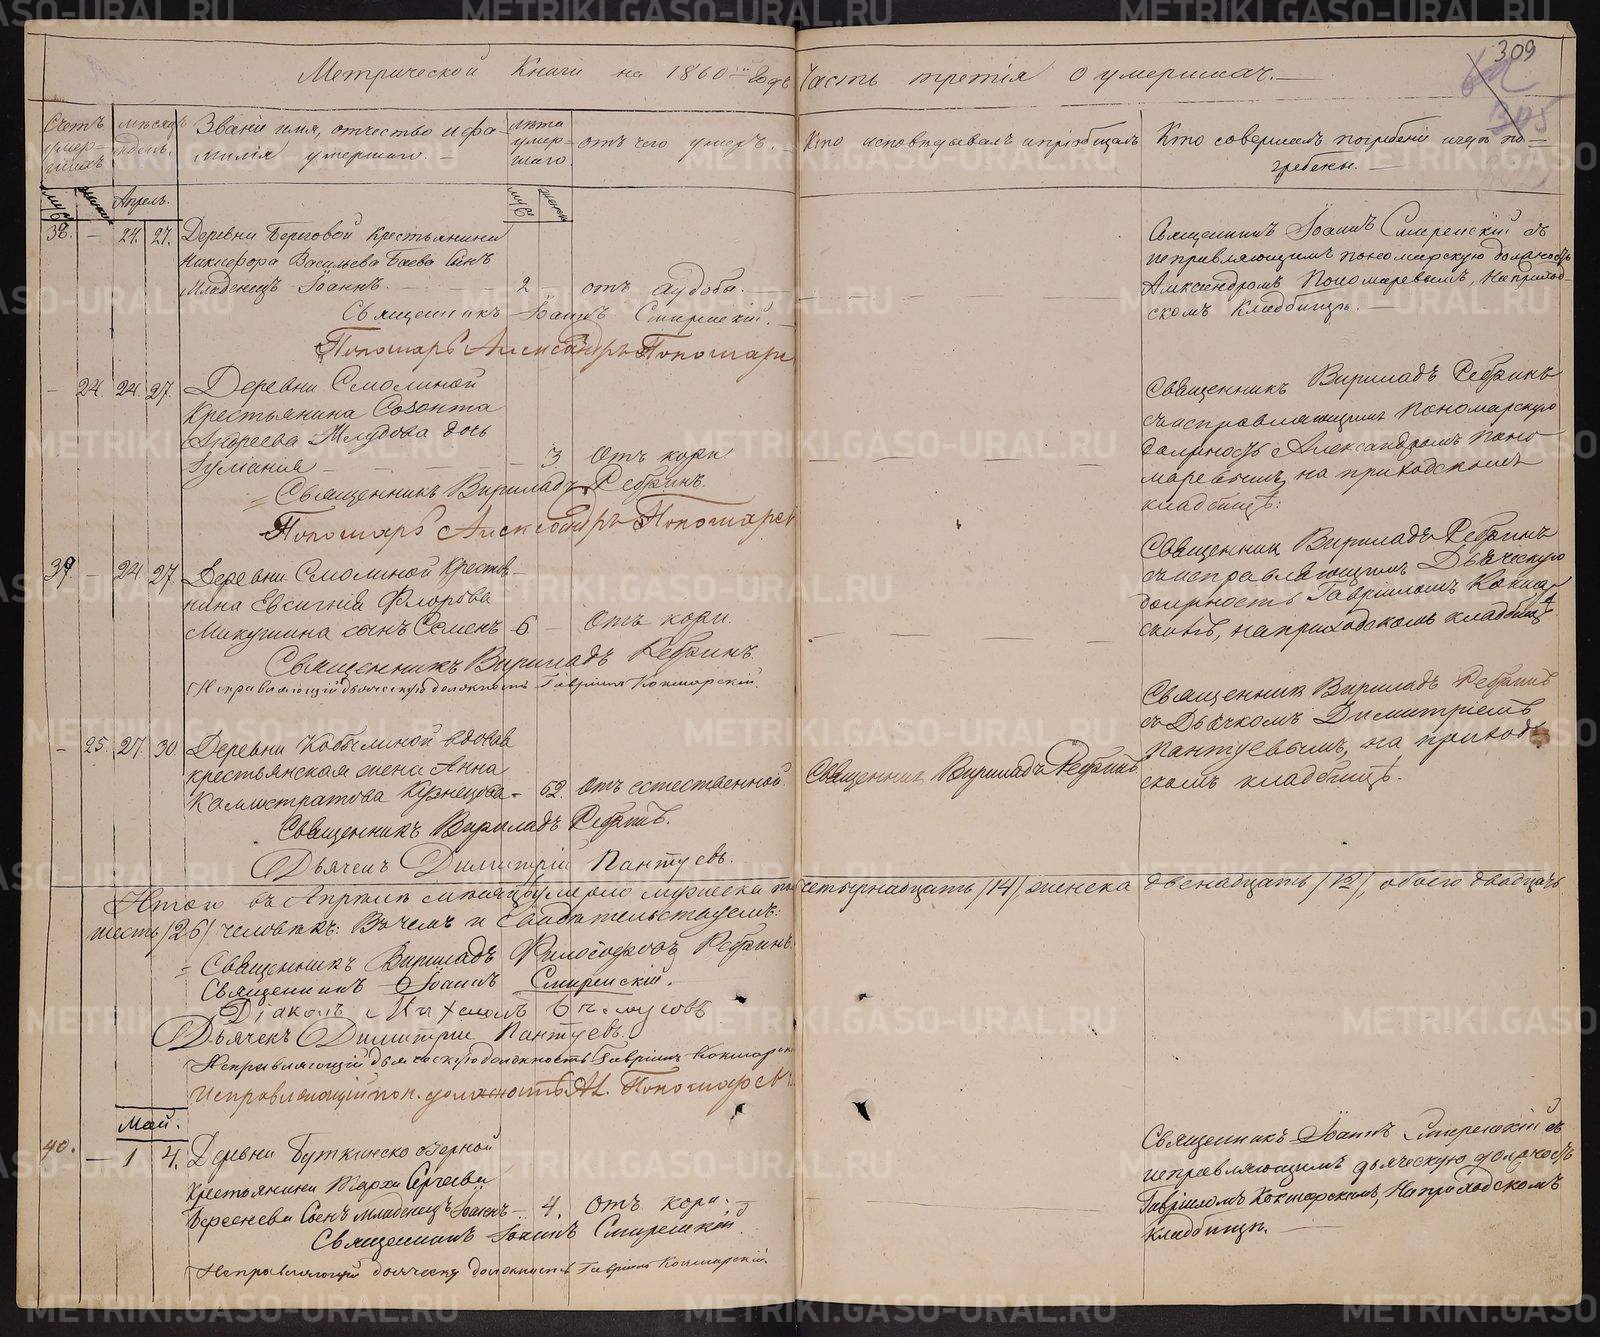 309
305
Метрической Книги на 1860й Годъ Часть третія о умершихъ.
Счетъ умер-шихъ
Мѣсяцъ и день.
Званіе имя, отчество и фа-
милія умершаго.
лѣта умер-шаго.
отъ чего умеръ.
Кто исповѣдывалъ и пріобщалъ
Кто совершалъ погребеніе и гдѣ по-
гребены.
муж
женс
Апрель.
муж
женс
38. — 24. 27. Деревни Береговой Крестьянина
Никифора Васильева Баева Сынъ
Младенецъ Іоаннъ. 2 — отъ
Священникъ Іоаннъ Смиренскій.
Пономарь Александръ Пономарев
Священникъ Іоаннъ Смиренскій съ
исправляющимъ пономарскую должность
Александромъ Пономаревымъ, На приход-
скомъ Кладбищѣ.
— 24. 24 27. Деревни Смолиной
Крестьянина Созонта
Андреева дочь
Іуліанія — 3 Отъ кори
Священникъ Вириладъ Ребринъ.
Пономарь Александръ Пономарев
Священникъ Вириладъ Ребринъ
съ исправляющимъ пономарскую
должность Александромъ Поно
маревымъ, на приходскомъ
кладбищѣ.
39. — 24 27. Деревни Смолиной Крестья-
нина Евсигнія Флорова
Микушина сынъ Семенъ 6 — Отъ кори.
Священникъ Вириладъ Ребринъ.
Исправляющій дьяческую должность Гавріилъ Кокшарскій.
Священник Вириладъ Ребринъ
съ исправляющимъ Дьяческую
должность Гавріиломъ Кокшар
скимъ, на приходскомъ кладбищѣ.
— 25. 27. 30 Деревни Кобылиной вдова
крестьянская жена Анна
Каллистратова Кузнецова — 62. Отъ естественной.
Священникъ Вириладъ Ребринъ.
Дьячекъ Димитрій Пантуевъ.
Священник Вириладъ Ребринъ
Священник Вириладъ Ребринъ
съ Дьячкомъ Димитріемъ
Пантуевымъ, на приход
скомъ кладбищѣ.
Итого въ Апрелѣ мѣсяцѣ умерло мужеска пол четырнадцать /14/, женска двенадцать /12/, обоего двадцать
шесть /26/ человѣкъ: Въ чемъ и Свидѣтельствуемъ:
Священникъ Вириладъ Философовъ Ребринъ.
Священникъ Іоаннъ Смиренскій.
Діаконъ Михаилъ
Дьячекъ Димитрій Пантуевъ.
Исправляющій дьяческую должность Гавріилъ Кокшарск
Исправляющій пон. должность Ал. Пономаревъ
Май.
40. — 1 4. Деревни Буткинско озерной
Крестьянина Марка Сергѣева
Береснева Сынъ младенецъ Іоаннъ — 4. отъ кори.
Священникъ Іоаннъ Смиренскій.
Исправляющій дьяческу должность Гавріилъ Кокшарскій.
Священникъ Іоаннъ Смиренскій съ
исправляющимъ дьяческую должность
Гавріиломъ Кокшарскимъ, На приходскомъ
Кладбищѣ.
METRIKI.GASO-URAL.RU